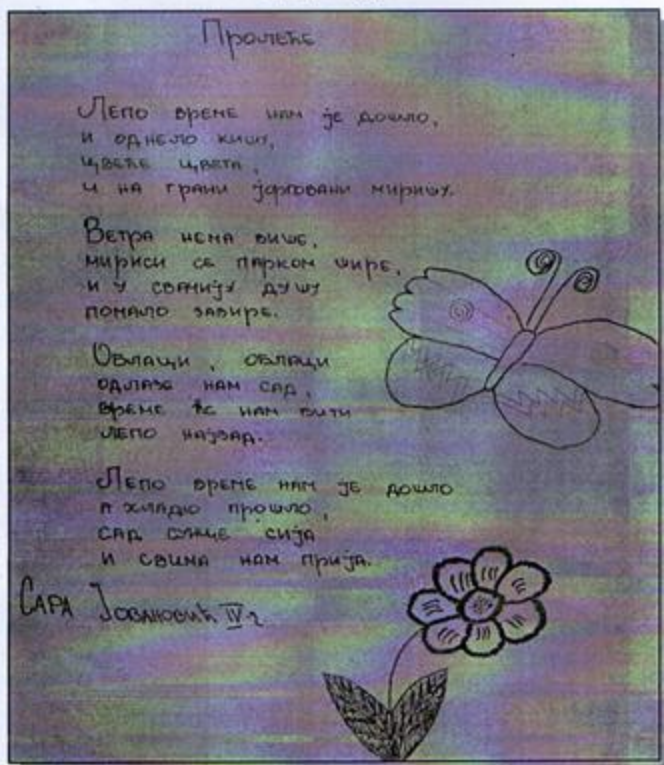 Пролеће
Лепо време нам је дошло,
и однело кишу,
цвеће цвета,
и на грани јорговани миришу.
Ветра нема више,
мириси се парком шире,
и у свачију душу
помало завире.
Облаци, облаци
одлазе нам сад,
време ће нам бити
лепо најзад.
Лепо време нам је дошло
а хладно прошло,
сад сунце сија
и свима нам прија.
Сара Јовановић IV-2